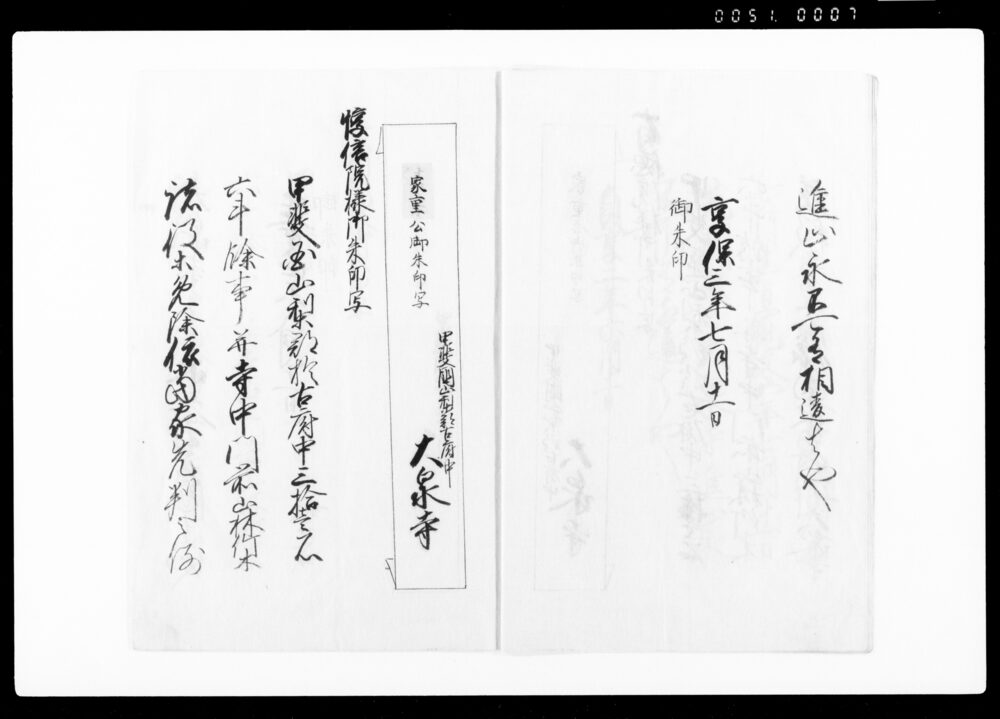 0051. 0007
進止永不可有相違者也
享保三年七月十一日
御朱印
甲斐国山梨郡古府中
大泉寺
家重公御朱印写
惇信院様御朱印写
甲斐国山梨郡於古府中三拾壱石
六斗餘事并寺中門前山林竹木
諸役等免除依当家先判之例